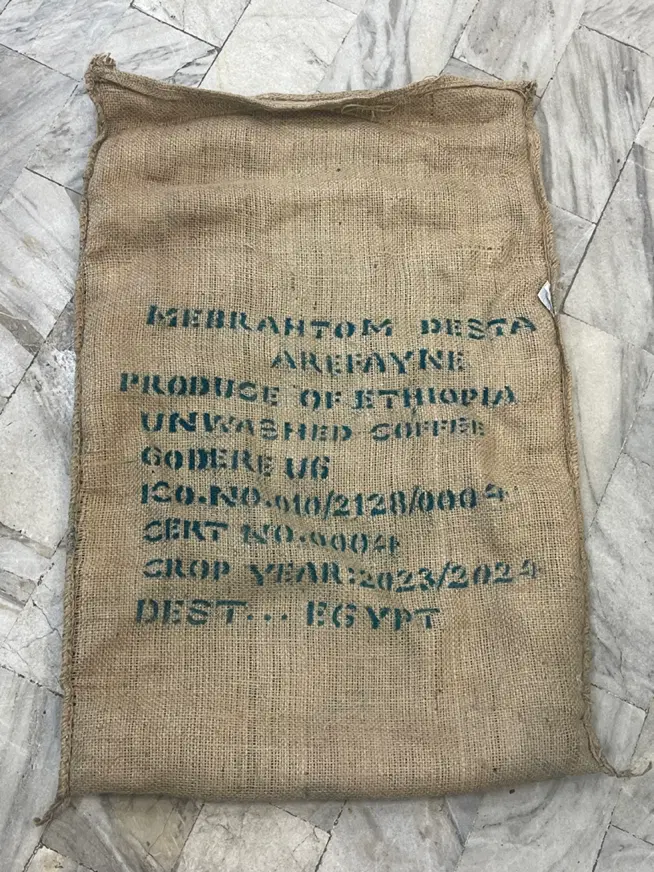 MEBRAHTOM DESTA
AREFAYNE
PRODUCE OF ETHIOPIA
UNWASHED COFFEE
GODERE UG
ICO.NO.010/2128/0004
CERT NO.0004
CROP YEAR:2023/2024
DEST... EGYPT